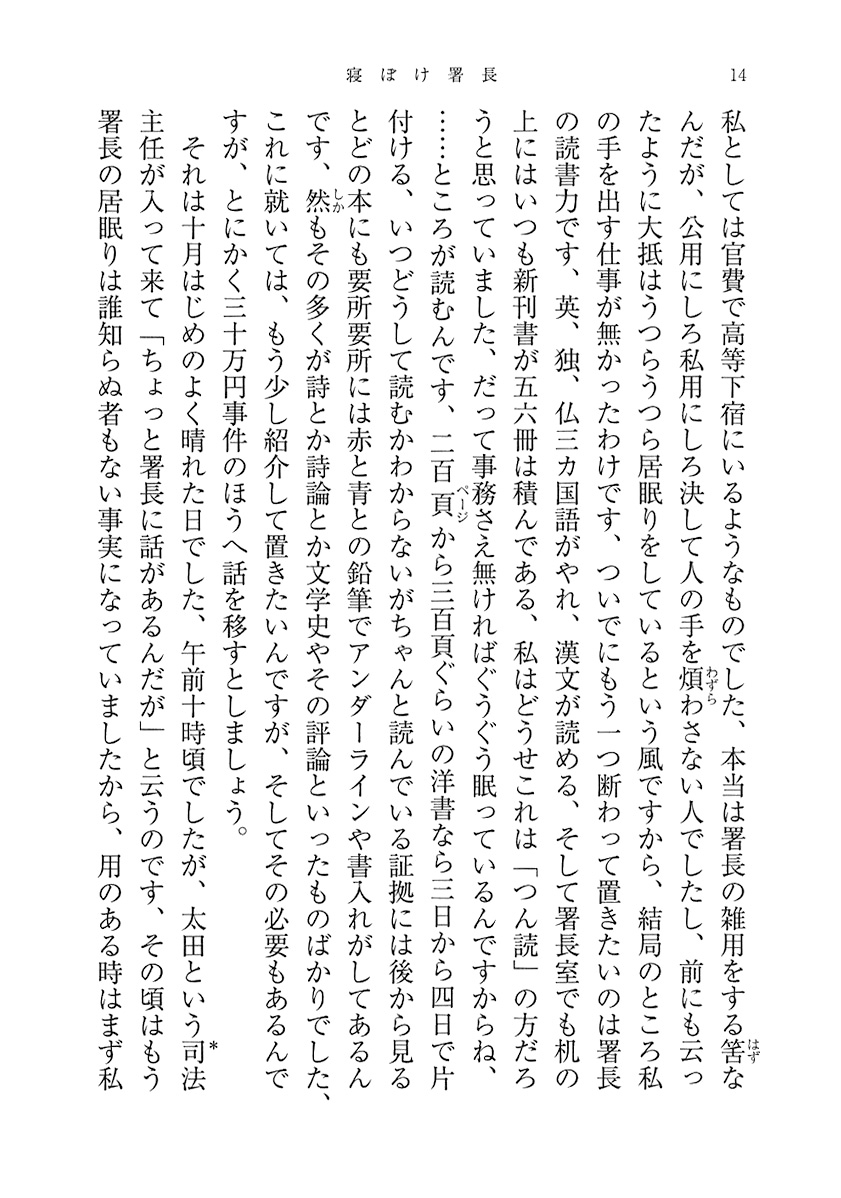 14
寝ぼけ署長
私としては官費で高等下宿にいるようなものでした、本当は署長の雑用をする筈な
んだが、公用にしろ私用にしろ決して人の手を煩わさない人でしたし、前にも云っ
たように大抵はうつらうつら居眠りをしているという風ですから、結局のところ私
の手を出す仕事が無かったわけです、ついでにもう一つ断わって置きたいのは署長
の読書力です、英、独、仏三カ国語がやれ、漢文が読める、そして署長室でも机の
上にはいつも新刊書が五六冊は積んである、私はどうせこれは「つん読」の方だろ
うと思っていました、だって事務さえ無ければぐうぐう眠っているんですからね、
……ところが読むんです、二百頁から三百頁ぐらいの洋書なら三日から四日で片
付ける、いつどうして読むかわからないがちゃんと読んでいる証拠には後から見る
とどの本にも要所要所には赤と青との鉛筆でアンダーラインや書入れがしてあるん
です、然もその多くが詩とか詩論とか文学史やその評論といったものばかりでした、
これに就いては、もう少し紹介して置きたいんですが、そしてその必要もあるんで
すが、とにかく三十万円事件のほうへ話を移すとしましょう。
それは十月はじめのよく晴れた日でした、午前十時頃でしたが、太田という司法*
主任が入って来て「ちょっと署長に話があるんだが」と云うのです、その頃はもう
署長の居眠りは誰知らぬ者もない事実になっていましたから、用のある時はまず私
はず
わずら
ページ
しか